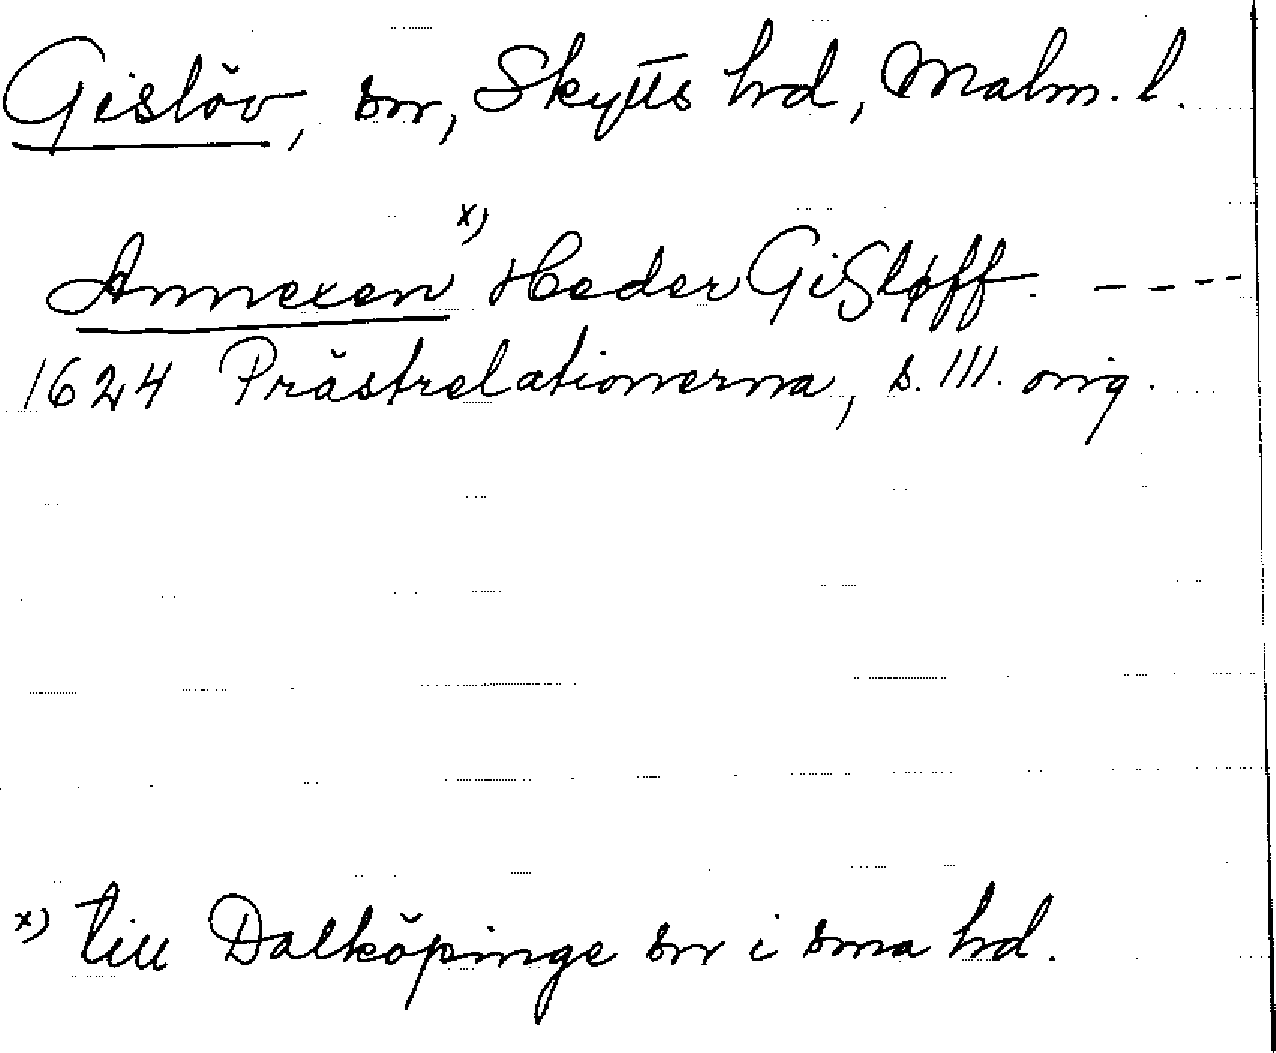 Gislöv, sn, Skytts hrd, Malm. l.
Annexen x) Heder Gisløff. ----
1624 Prästrelationerna, s. 111. orig.
x) till Dalköpinge sn i sma hrd.